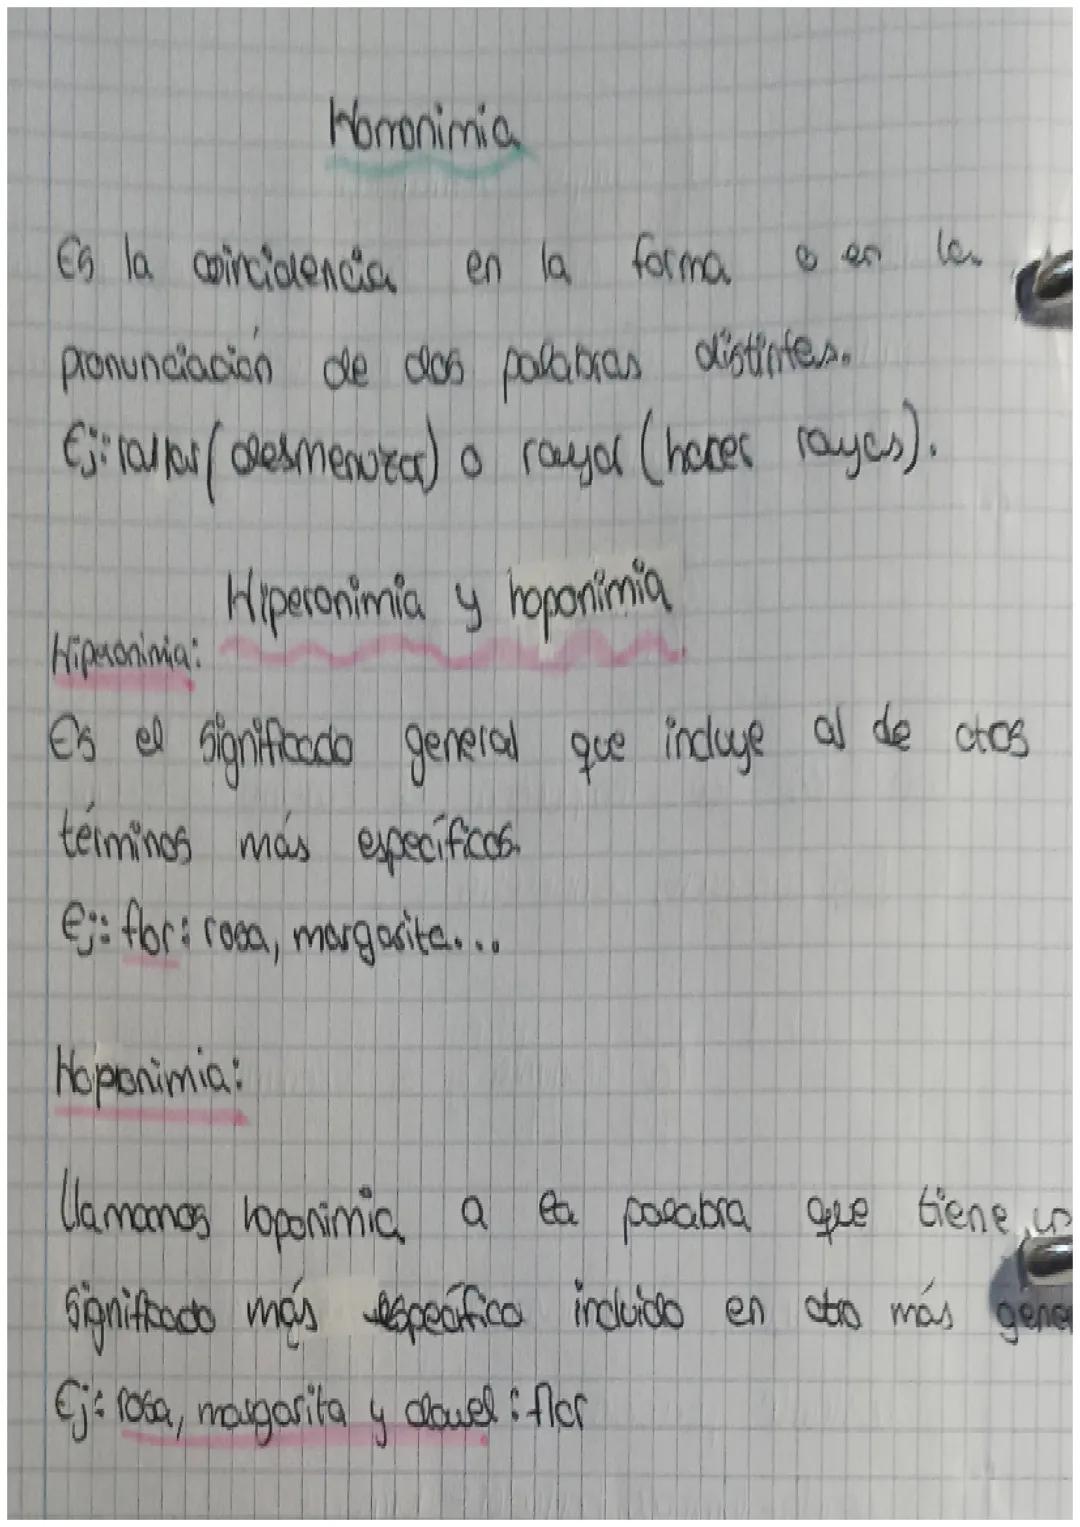 Homonimia
Es la coincidencia en la forma o en la
pronunciación de dos palabras distintas.
Ej: rallar (desmenuzar) o rayar (hacer rayas).
Hiperonimia y hoponimia
Hiperonimia:
Es el significado general que incluye al de otros
términos más específicos.
Ej: flor: rosa, margarita...
Hoponimia:
Llamamos hoponimia a la palabra que tiene un
significado más específico incluido en otro más gener
Ej: rosa, margarita y clavel: flor